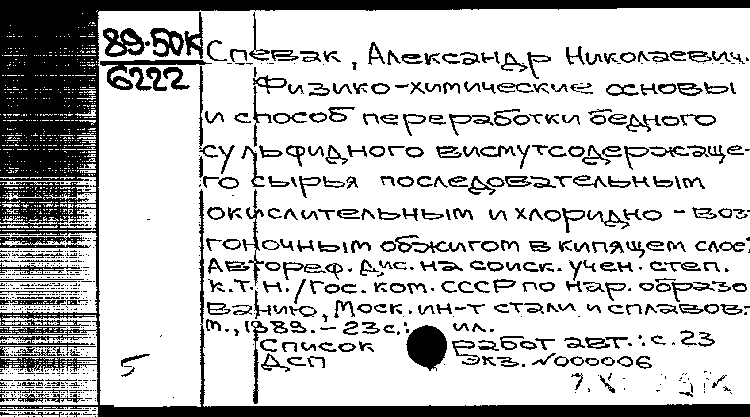 89-50К
6222
Спевак, Александр Николаевич.
Физико-химические основы
и способ переработки бедного
сульфидного висмутсодержаще-
го сырья последовательным
окислительным и хлоридно-воз
гоночным обжигом в кипящем слое:
Автореф. дис. на соиск. учен. степ.
к.т.н. / Гос. ком. СССР по нар. образо
ванию, Моск. ин-т стали и сплавов.-
М., 1989. - 23 с.: ил.
Список работ авт.: с. 23
ДСП Экз. №000006
5